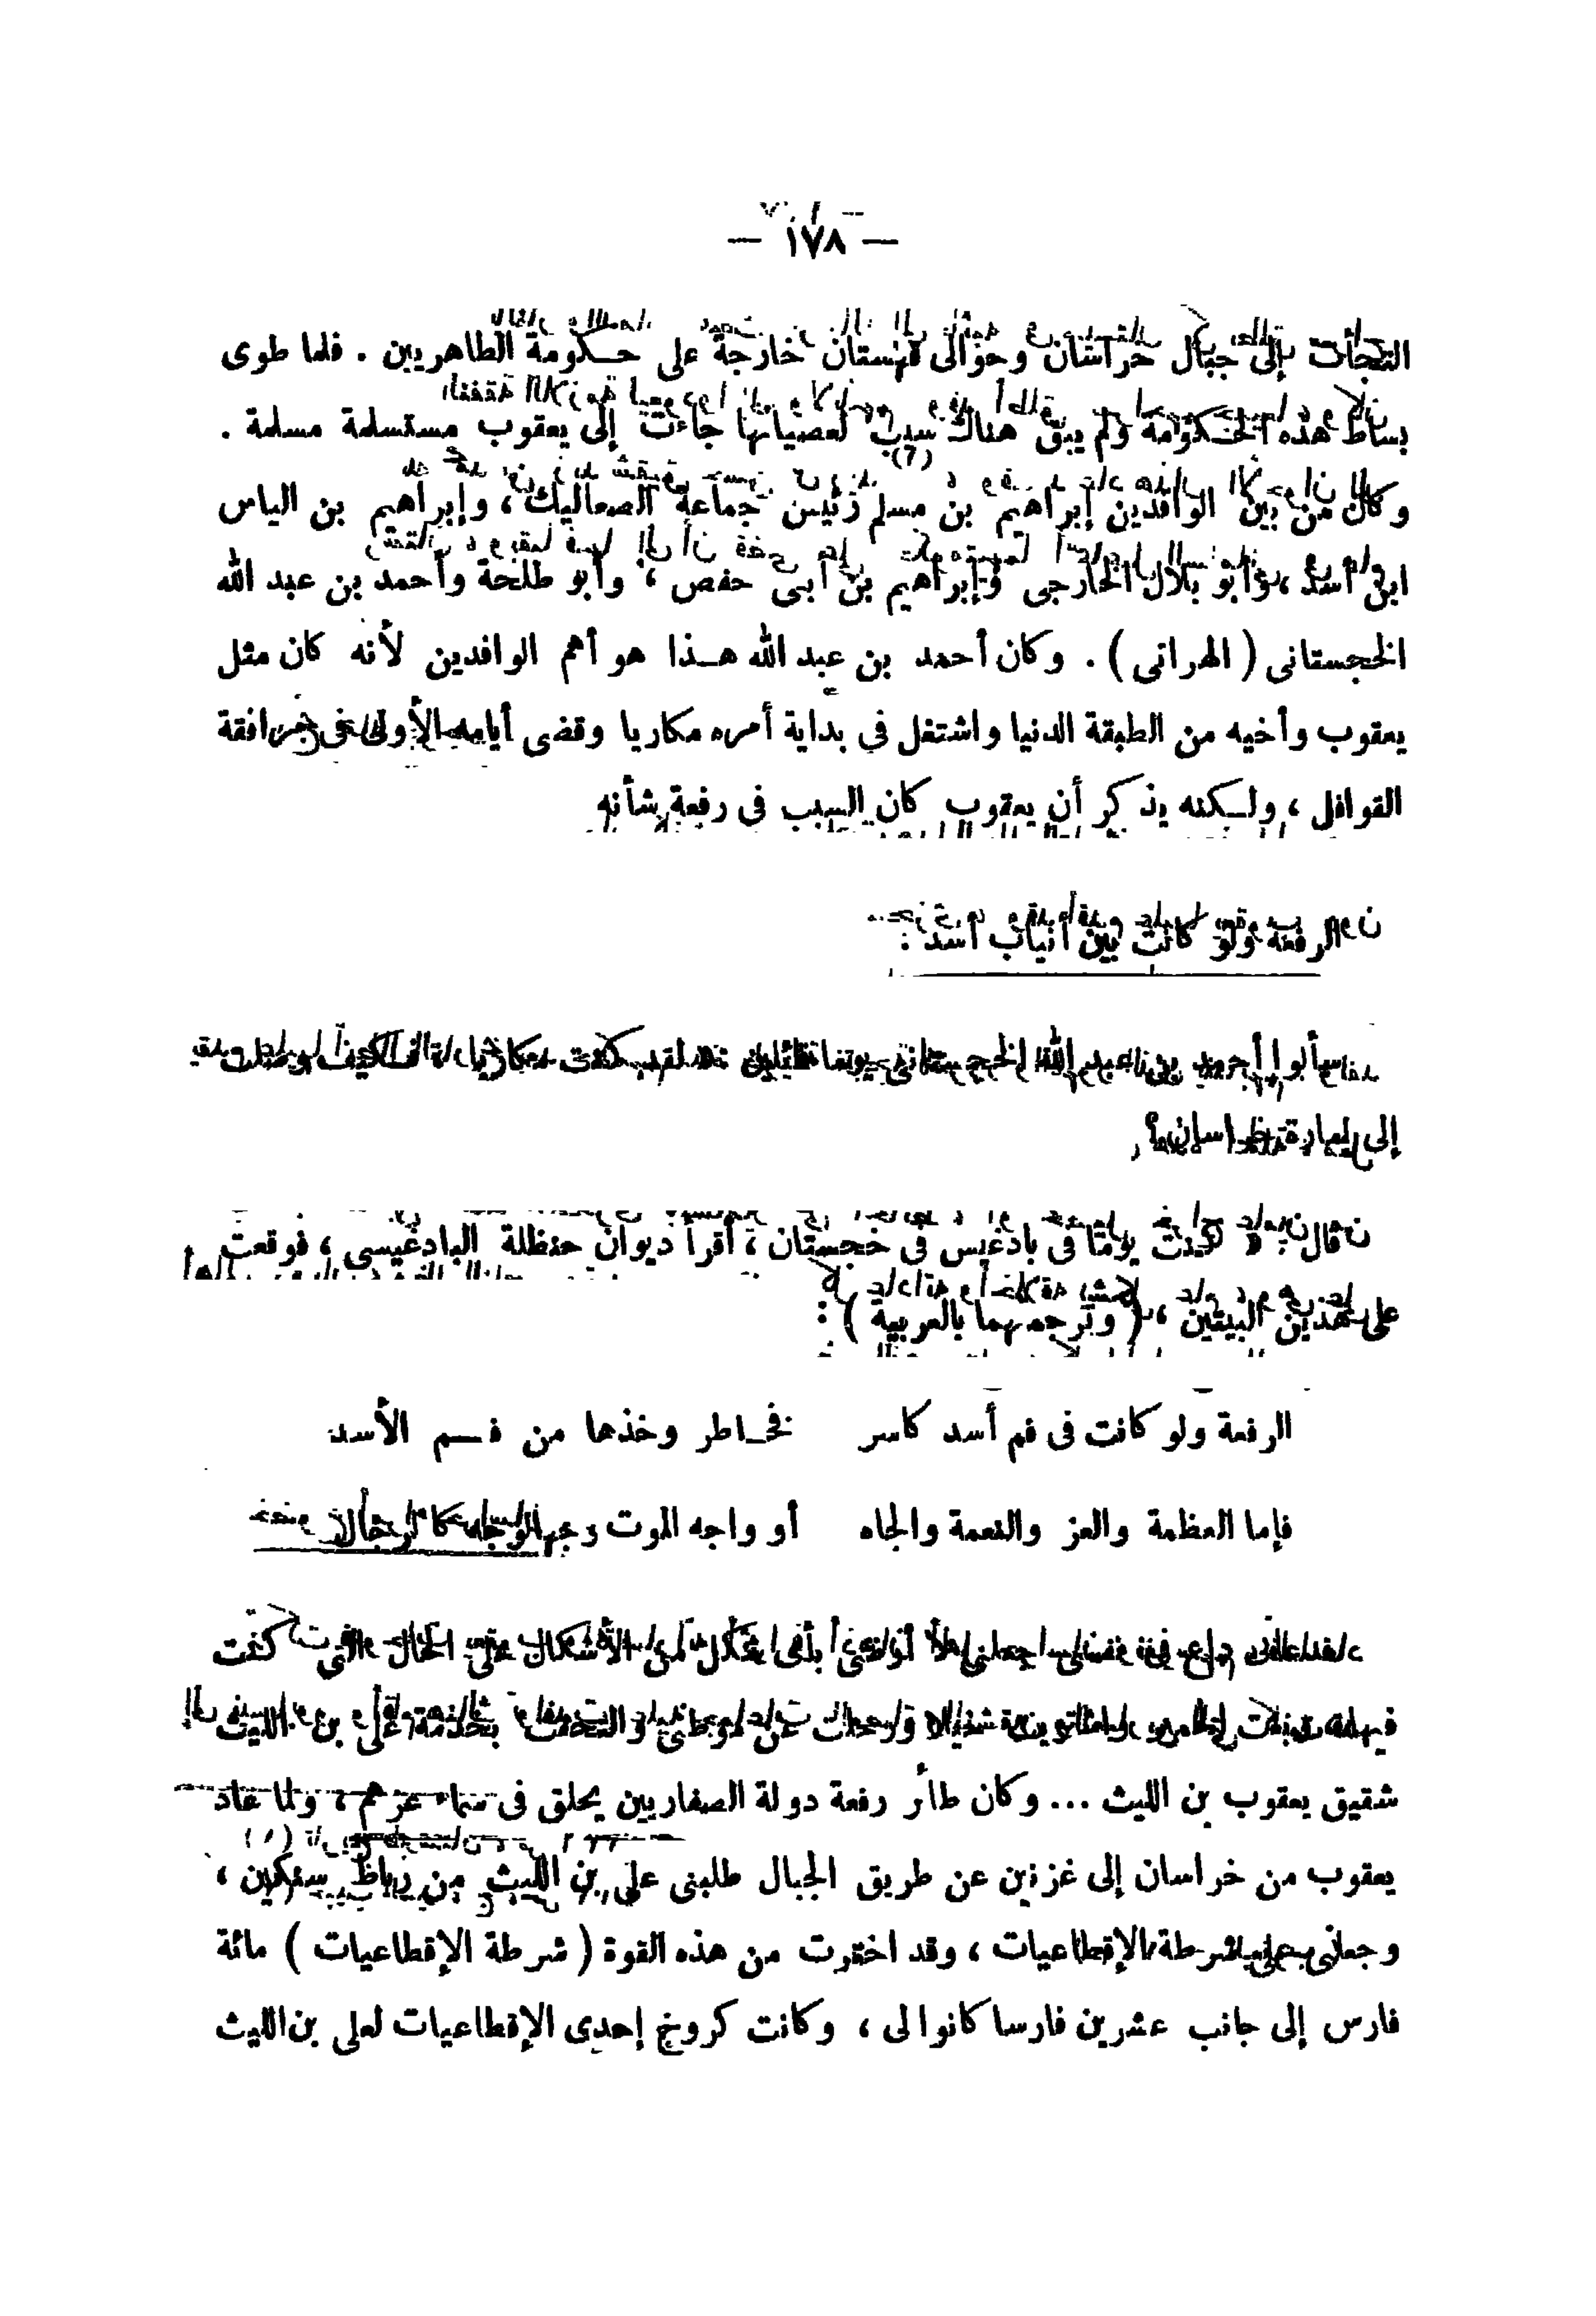 — ١٧٨ —
التجأت إلى جبال خراسان وحوالى قهستان خارجة على حكومة الطاهريين . فلما طوى
بساط هذه الحكومة ولم يبق هناك سبب لعصيانها جاءت إلى يعقوب مستسلمة مسلمة .
وكان من بين الوافدين إبراهيم بن مسلم رئيس جماعة الصعاليك ، وإبراهيم بن الياس
ابن أسد ، وأبو بلال الخارجى وإبراهيم بن أبى حفص ، وأبو طلحة وأحمد بن عبد الله
الخجستانى ( الهرانى ) . وكان أحمد بن عبد الله هذا هو أهم الوافدين لأنه كان مثل
يعقوب وأخيه من الطبقة الدنيا واشتغل في بداية أمره مكاريا وقضى أيامه الأولى فى مرافقة
القوافل ، ولكنه يذكر أن يعقوب كان السبب فى رفعة شأنه
الرفعة ولو كانت بين أنياب أسد :
سألوا أحمد بن عبد الله الخجستانى يوما قائلين لقد كنت مكاريا فكيف وصلت
إلى إمارة خراسان ؟
قال : « كنت يوما فى بادغيس فى خجستان ، أقرأ ديوان حنظلة البادغيسى ، فوقعت
على هذين البيتين ، ( وترجمتهما بالعربية ) :
الرفعة ولو كانت فى فم أسد كاسر فخاطر وخذها من فم الأسد
فإما العظمة والعز والنعمة والجاه أو واجه الموت وجها لوجه كالرجال
بأى شكل من الأشكال على الحال التى كنت
عن وطنى والتحقت بخدمة على بن الليث
شقيق يعقوب بن الليث ... وكان طائر رفعة دولة الصفاريين يحلق فى سماء عزهم ، ولما عاد
يعقوب من خراسان إلى غزنين عن طريق الجبال طلبنى على بن الليث من رباط سنكين ،
وجعلنى على شرطة الإقطاعيات ، وقد اخترت من هذه القوة ( شرطة الإقطاعيات ) مائة
فارس إلى جانب عشرين فارسا كانوا لى ، وكانت كروخ إحدى الإقطاعيات لعلى بن الليث